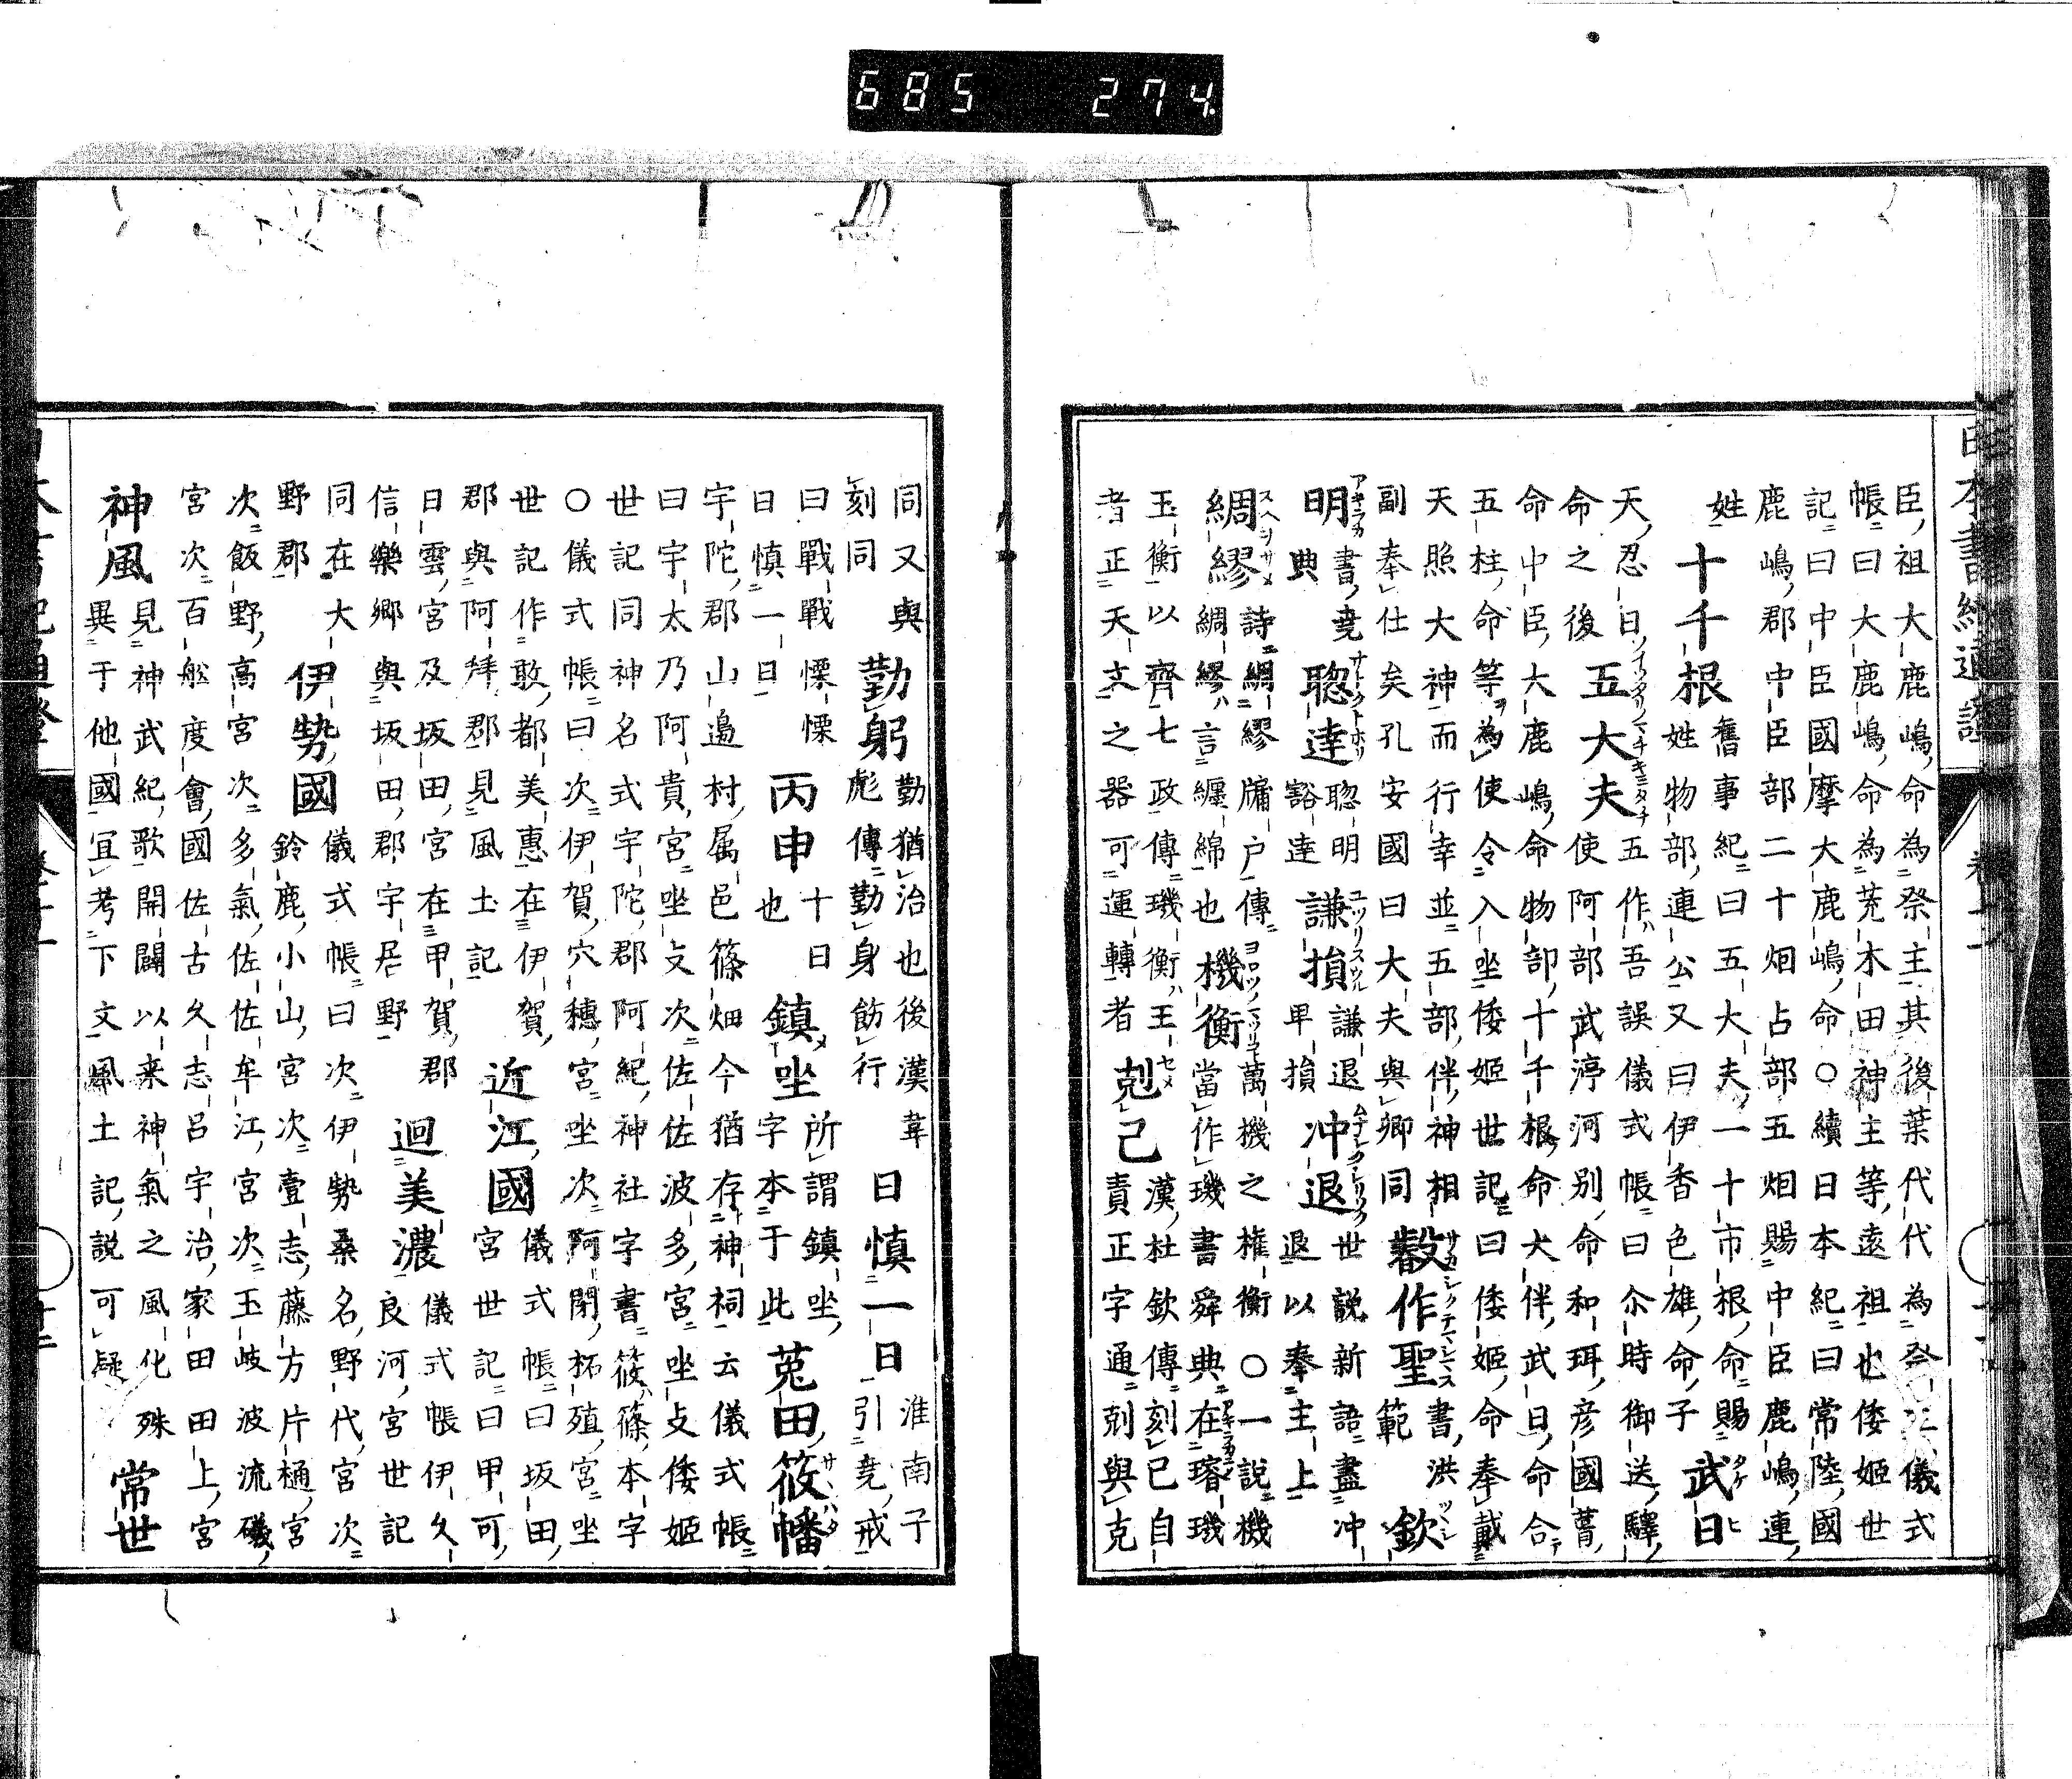 685 274
臣祖大鹿嶋命為祭主其後葉代代為祭主儀式
帳曰大鹿嶋命為荒木田神主等遠祖也倭姬世
記曰中臣國摩大鹿嶋命○續日本紀曰常陸國
鹿嶋郡中臣部二十烟占部五烟賜中臣鹿嶋連
姓
十千根
舊事紀曰五大夫一十市根命賜
姓物部連公又曰伊香色雄命子
武日
タケヒ
天忍日
五大夫
イツタリノマチキミタチ
五作吾誤儀式帳曰尒時御送驛
命之後
使阿部武渟河別命和珥彦國葺
命中臣大鹿嶋命物部十千根命大伴武日命合
五柱命等ヲ為使令入坐倭姬世記曰倭姬命奉戴
天照大神而行幸並五部伴神相
副奉仕矣孔安國曰大夫與卿同
叡作聖
サカシクテマレマス
書洪
範
欽
ツヽシ
明
アキラカ
書堯
典
聰達
サトクトホリ
聰明
豁達
謙損
ユツリスウル
謙退
卑損
冲退
ムナシクシリソク
世説新語盡冲
退以奉主上
綢繆
スヘヲサメ
詩綢繆牖戶傳
綢繆ハ言纏綿也
機衡
ヨロツノマツリコト
萬機之權衡○一說機
當作璣書舜典在璿璣
玉衡以齊七政傳璣衡ハ王
者正天文之器可運轉者
剋己
セメ
漢杜欽傳刻己自
責正字通剋與克
同又與
刻同
勤躬
勤猶治也後漢韋
彪傳勤身飭行
日慎一日
淮南子
引堯戒
曰戰戰慄慄
日慎一日
丙申
十日
也
鎮坐
所謂鎮坐
字本于此
菟田筱幡
サヽハタ
宇陀郡山邉村属邑篠畑今猶存神祠云儀式帳
曰宇太乃阿貴宮坐攴次佐佐波多宮坐攴倭姬
世記同神名式宇陀郡阿紀神社字書筱ハ篠本字
○儀式帳曰次伊賀穴穗宮坐次阿閉柘殖宮坐
世記作敢都美惠在伊賀
郡與阿拜郡見風土記
近江國
儀式帳曰坂田
宮世記曰甲可
日雲宮及坂田宮在甲賀郡
信樂鄉與坂田郡宇居野
迴美濃
儀式帳伊久
良河宮世記
同在大
野郡
伊勢國
儀式帳曰次伊勢桑名野代宮次
鈴鹿小山宮次壹志藤方片樋宮
次飯野高宮次多氣佐佐牟江宮次玉岐波流礒
宮次百舩度會國佐古久志呂宇治家田田上宮
神風
見神武紀歌開闢以来神氣之風化殊
異于他國宜考下文風土記説可疑
常世